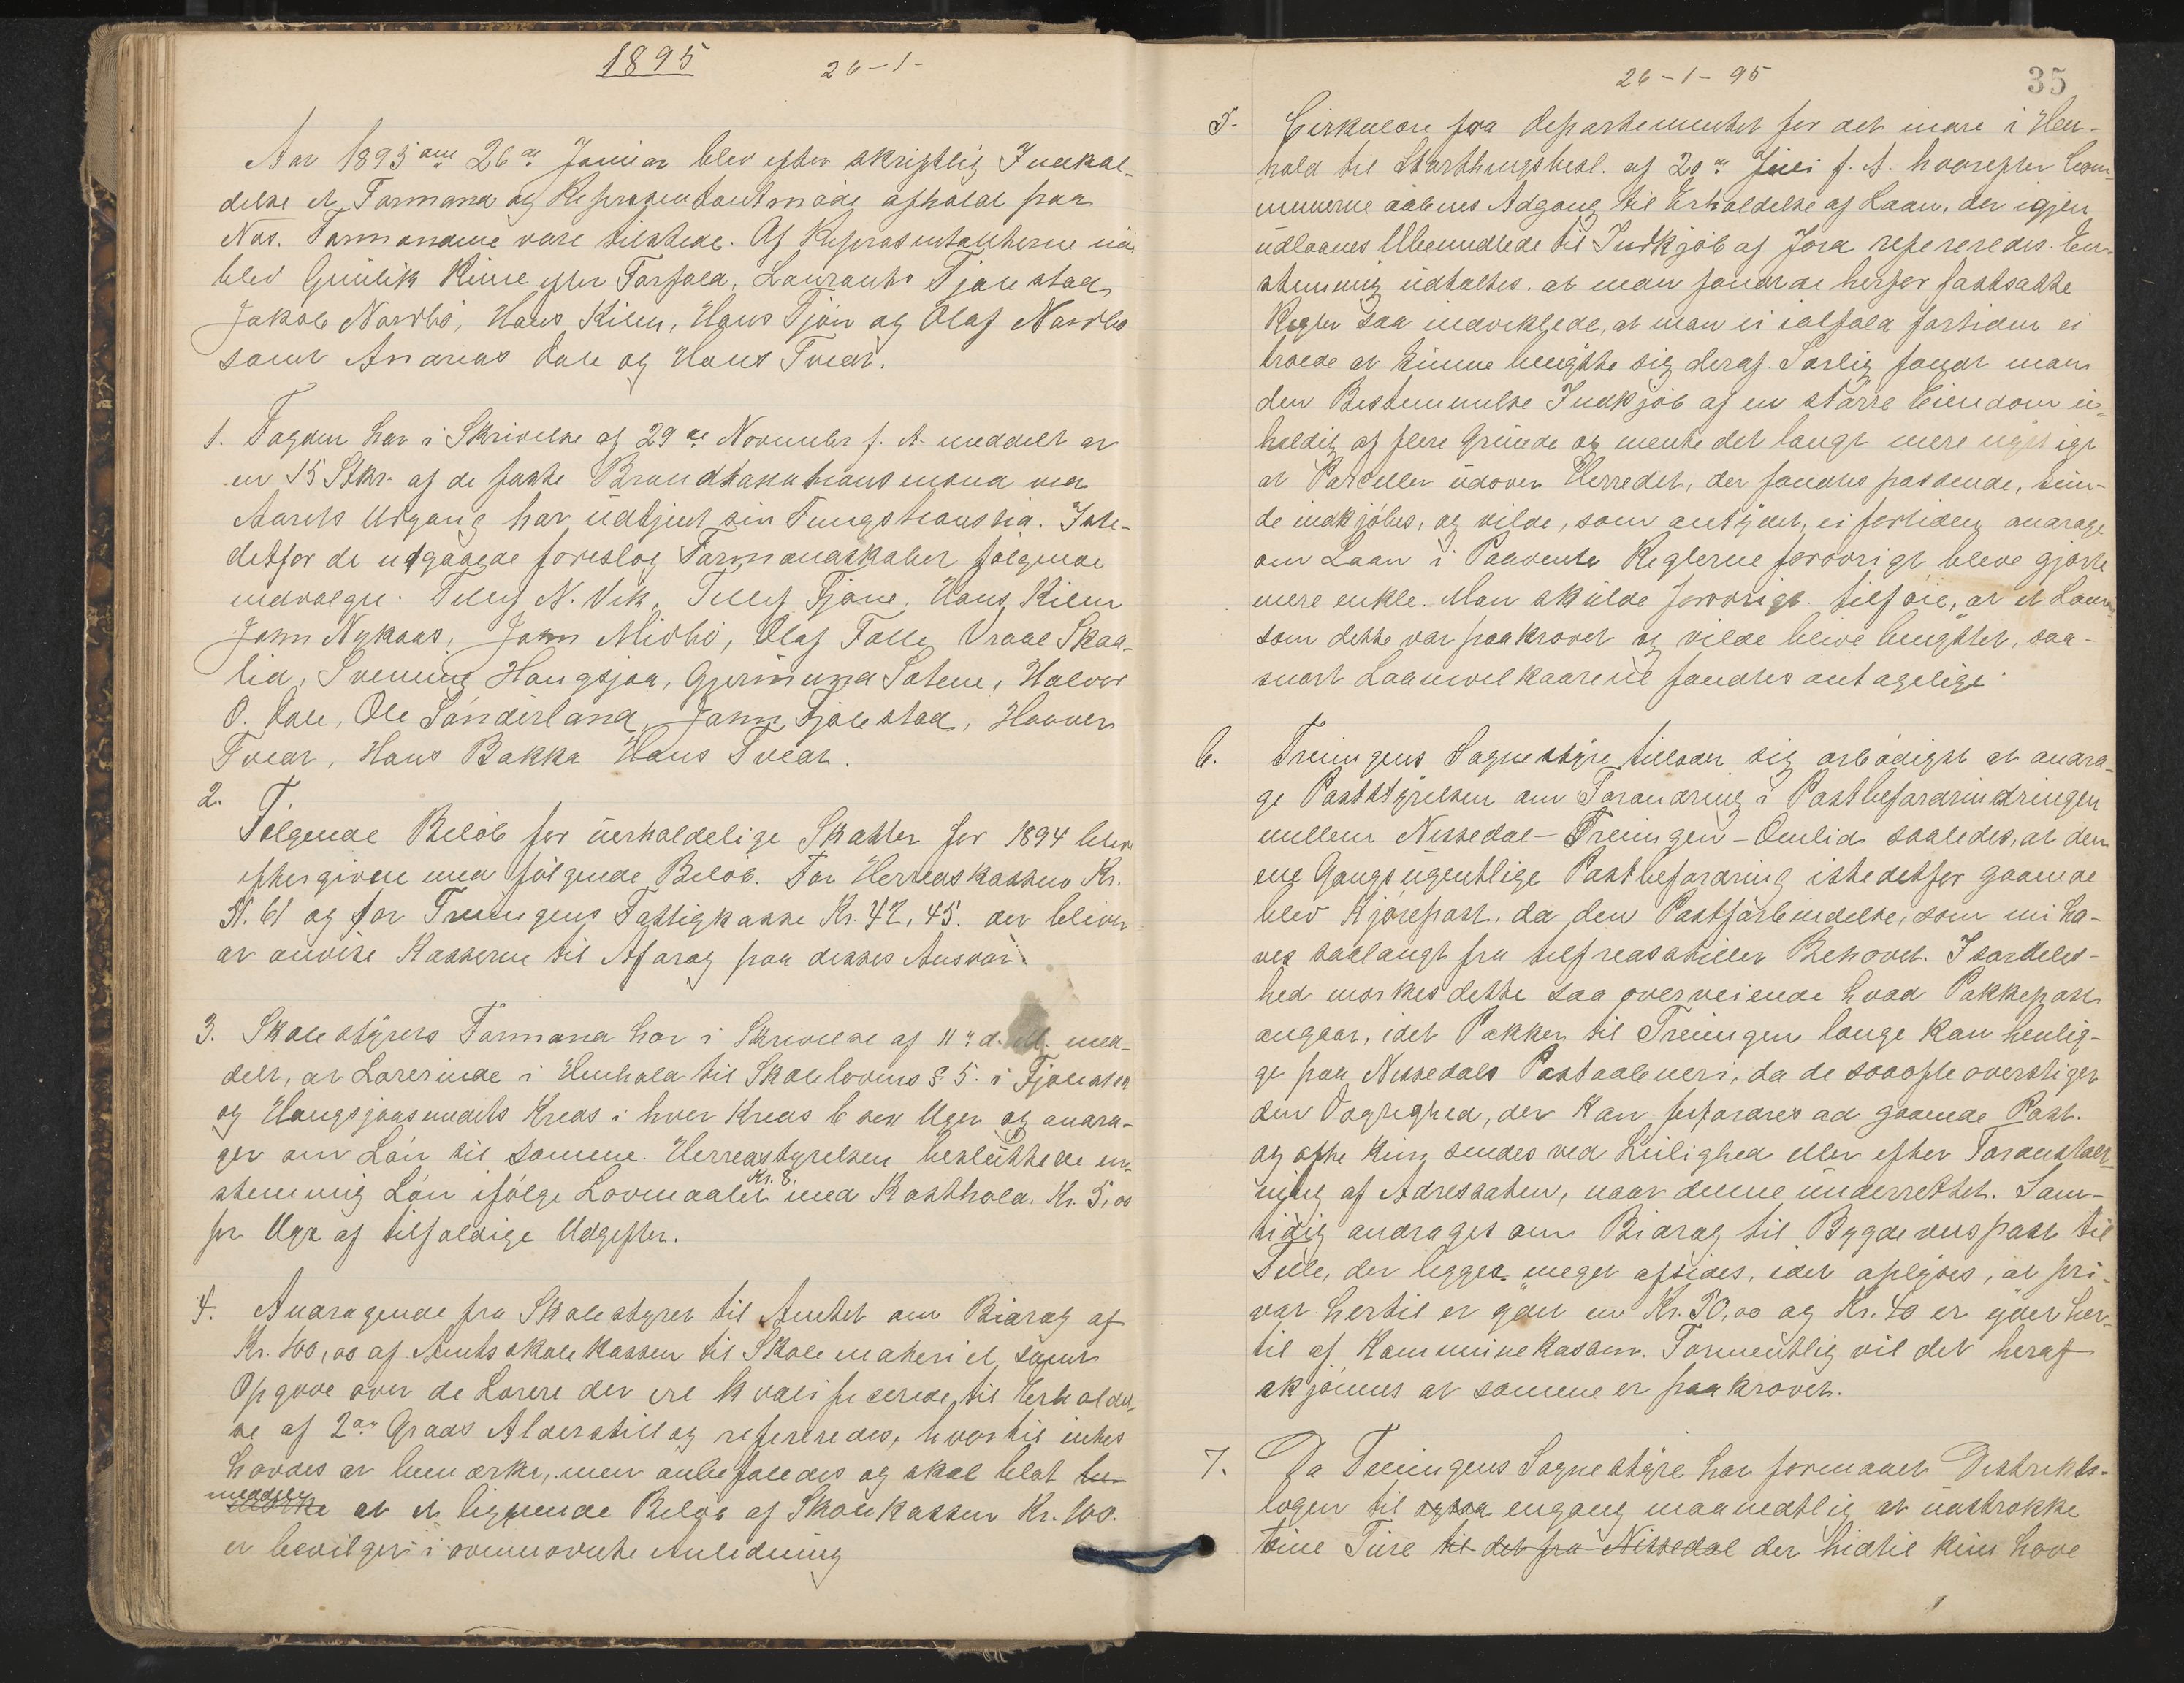 1895 26-1-
Aar 1895 den 26de Januar blev efter skriftlig Indkal-
delse et Formand og Repræsentantmøde afholdt paa
Næs. Formændene vare tilstede. Af Repræsentanterne ude
blev Gunlik Kirre efter Forfald, Laurants Tjønstad
Jakob Nordbö, Hans Kilen, Hans Tjön og Olaf Nordbö
samt Andreas Dale og Hans Tveit.
1. Fogden har i Skrivelse af 29de November f. A. meddelt at
en 15 Stkr. af de faste Brandtaxationsmænd ved
Aarets Udgang har udtjent sin Fungstionstid. Iste-
detfor de udgaaede foreslog Formandskabet følgende
indvalgte. Tellef N. Vik, Tellef Tjöne, Hans Kilen
John Nykaas, John Midbö, Olaf Felle, Vraal Skaa-
lid, Svenung Haugsjaa, Gjermund Sätene, Halvor
O. Dale, Ole Sönderland, John Tjönstad, Haaver
Tveit, Hans Bakka Hans Tveit.
2.
Følgende Beløb for uerholdelige Skatter for 1894 blev
eftergivne med følgende Beløb. For Herredskassen Kr.
51.61 og for Treungens Fattigkasse Kr. 42,45. der bliver
at anvise Kasserne til Afdrag paa disses Ansvar.
3. Skolestyrets Formand har i Skrivelse af 11te d. M. med-
delt, at Lærerinde i Henhold til Skolelovens § 5. i Tjönstad
og Haugsjaasundets Kreds i hver Kreds 6 sex Uger og andra-
ger om Løn til samme. Herredstyrelsen besluttede en-
Kr. 8.
stemmig Løn ifølge Lovmaalet med Kosthold. Kr. 5,00
pr Uge af tilfældige Udgifter.
4. Andragende fra Skolestyret til Amtet om Bidrag af
Kr. 100,00 af Amtsskolekassen til Skolemateriel samt
Opgave over de Lærere der ere kvalificerede til Erholdel-
se af 2den Grads Alderstillæg refereredes, hvortil intet
havdes at bemærke, men anbefaledes og skal blot be-
meddeles
mærke at et lignende Beløb af Skolekassen Kr. 100.
er bevilget i ovennævnte Anledning
26-1-95 35
5. Cirkulære fra Departementet for det indre i Hen-
hold til Storthingsbesl. af 20de Juli f. A. hvorefter Com-
munerne aabnes Adgang til Erholdelse af Laan, der igjen
udlaanes Ubemidlede til Indkjøb af Jord refereredes. En-
stemmig udtaltes. at man fandt de herfor fastsatte
Regler saa indviklede, at man ei ialfald fortiden ei
troede at kunne benytte sig deraf. Særlig fandt man
den Bestemmelse Indkjøb af en større Eiendom u-
heldig af flere Grunde og mente det langt mere nyttigt
at Parceller udover Herredet, der fandtes passende, kun-
de indkjøbes, og vilde, som antydet, ei fortiden andrage
om Laan i Paavente Reglerne forøvrigt bleve gjorte
mere enkle. Man skulde forøvrigt tilføie, at et Laan
som dette var paakrævet og vilde blive benyttet, saa-
snart Laanevilkaarene fandtes antagelige.
6. Treungens Sognestyre tillader sig ærbødigst at andra-
ge Poststyrelsen om Forandring i Postbefordrindringen
mellem Nissedal - Treungen - Omlid saaledes, at den
ene Gangs ugentlige Postbefordring istedetfor gaaende
blev Kjørepost, da den Postforbindelse, som nu ha-
ves saalangt fra tilfredsstiller Behovet. Isærdeles-
hed mærkes dette saa overveiende hvad Pakkepost
angaar, idet Pakker til Treungen længe kan henlig-
ge paa Nissedals Postaabneri, da de saaofte overstiger
den Vægtighed, der kan befordres ad gaaende Post.
og ofte kun sendes ved Leilighed eller efter Foranstalt-
ning af Adressaten, naar denne underrettet. Sam-
tidig andrages om Bidrag til Bygdeveispost til
Felle, der ligger meget afsides, idet oplyses, at pri-
vat hertil er ydet en Kr. 50,00 og Kr. 40 er ydet her-
til af Kommunekassen. Formentlig vil det heraf
skjønnes at samme er paakrævet.
7. Da Treungens Sognestyre har formaaet Distrikts-
lægen til ogsaa engang maanedtlig at udstrække
sine Ture til det fra Nissedal der hidtil kun have